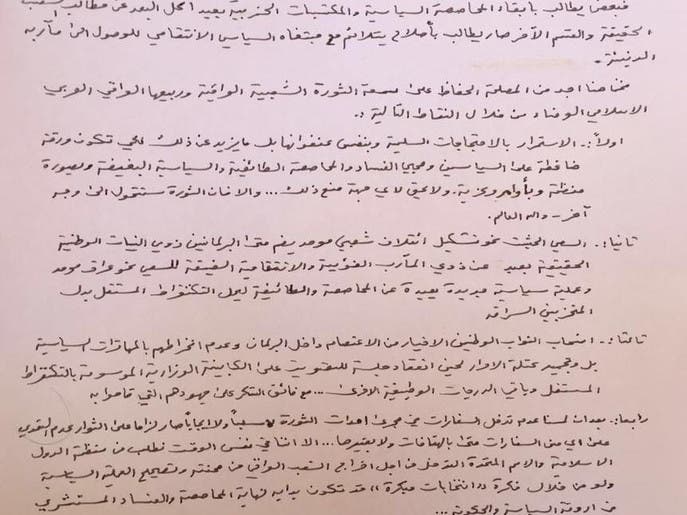 فبعض يطالب بابقاء المحاصصة السياسية والمكتسبات الحزبية بعيد اكل البعد عن مطالب الشعب
الحقيقة والقسم الآخر صار يطالب بأصلاح يتلائم مع مبتغاه السياسي الانتقامي للوصول الى مآربه
الدنيئة .
مما هنا اجد من المصلحة الحفاظ على سمعة الثورة الشعبية العراقية وربيعها العراقي العربي
الاسلامي الوضاء من خلال النقاط التالية :.
اولاً :. الاستمرار بالاحتجاجات السلمية وبنفس عنفوانها بل ما يزيد عن ذلك لكي تكون ورقة
ضاغطة على السياسيين ومحبي الفساد والمحاصصة الطائفية والسياسية البغيضة وبصورة
منظمة وبأوامر مركزية. ولا يحق لاي جهة منع ذلك ... والا فان الثورة ستتحول الى وجه
آخر - والله العالم.
ثانيا :. السعي الحثيث نحو تشكيل ائتلاف شعبي موحد يضم حتى البرلمانيين ذوي النيات الوطنية
الحقيقية بعيد عن ذوي المآرب الفئوية والانتقامية الضيقة للسعي نحو عراق موحد
وعملية سياسية جديدة بعيدة عن المحاصصة والطائفية ليحل التكنقراط المستقل بدل
المتحزبين السراق
ثالثا :. انسحاب النواب الوطنيين الاخيار من الاعتصام داخل البرلمان وعدم انخراطهم بالمهاترات السياسية
بل وتجميد كتلة الاحرار لحين انعقاد جلسة للتصويت على الكابينة الوزارية الموسومة بالتكنقراط
المستقل وباقي الدرجات الوظيفية الاخرى ... مع فائق الشكر على جهودهم التي قاموا به
رابعا :. بعد ان لمسنا عدم تدخل السفارات في مجرى احداث الثورة لا سلباً ولا ايجاباً صار لزاما على الثوار عدم التعدي
على اي من السفارات حتى بالهتافات ولا بغيرها ... الا اننا في نفس الوقت نطلب من منظمة الدول
الاسلامية والامم المتحدة التدخل من اجل اخراج الشعب العراقي من محنته وتصحيح العملية السياسية
ولو من خلال فكرة (( انتخابات مبكرة )) قد تكون بداية لنهاية المحاصصة والفساد المستشري
في اروقة السياسة والحكومة ...